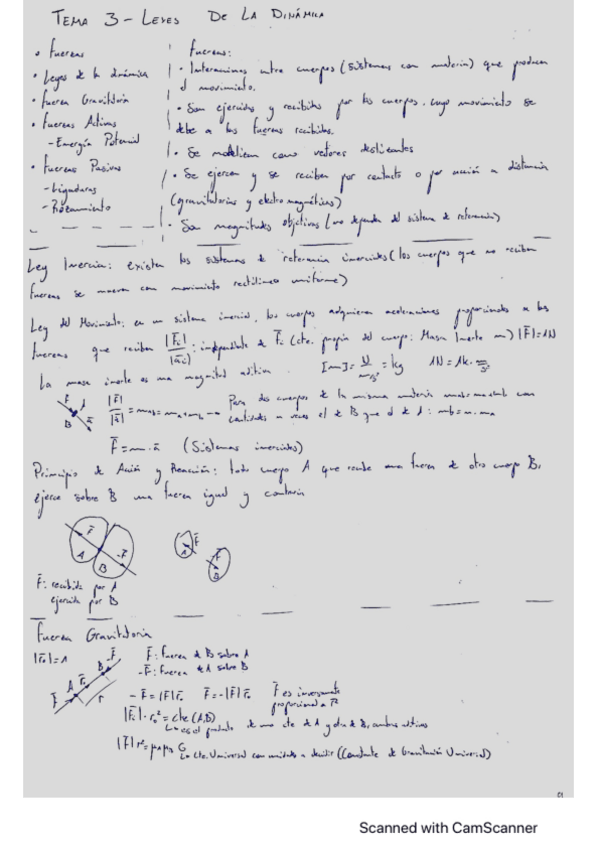 TEMA 3 - LEYES DE LA DINÁMICA
• Fuerzas
• Leyes de la dinámica
• Fuerza Gravitatoria
• Fuerzas Activas
- Energía Potencial
• Fuerzas Pasivas
- Ligaduras
- Rozamiento
Fuerzas:
• Interacciones entre cuerpos (sistemas con materia) que producen
el movimiento.
• Son ejercidas y recibidas por los cuerpos, cuyo movimiento se
debe a las fuerzas recibidas.
• Se modelizan como vectores deslizantes
• Se ejercen y se reciben por contacto o por acción a distancia
(gravitatorias y electromagnéticas)
• Son magnitudes objetivas (no dependen del sistema de referencia)
Ley Inercia: existen los sistemas de referencia inerciales (los cuerpos que no reciben
fuerzas se mueven con movimiento rectilíneo uniforme)
Ley del Movimiento: en un sistema inercial, los cuerpos adquieren aceleraciones proporcionales a las
fuerzas que reciben |F̄i|/|āi| : independiente de F̄i (cte. propia del cuerpo: Masa Inerte m) |F̄|=1N
La masa inerte es una magnitud aditiva. [m]= = kg 1N = 1k.
F A
B ā
|F̄|/|ā| = mAB = mA+mB → Para dos cuerpos de la misma materia con
cantidades n veces el de B que el de A : mB = n·mA
F̄ = m·ā (Sistemas inerciales)
Principio de Acción y Reacción: todo cuerpo A que recibe una fuerza de otro cuerpo B,
ejerce sobre B una fuerza igual y contraria
F̄ A B -F̄
A F̄ B
F̄: recibida por A
ejercida por B
Fuerza Gravitatoria
|r̄o| = 1
F̄ A r̄o B -F̄ r
F̄: Fuerza de B sobre A
-F̄: Fuerza de A sobre B
- F̄ = |F̄| r̄o F̄ = -|F̄| r̄o F̄ es inversamente
proporcional a r²
= cte (A,B)
↳ es el producto de una cte de A y otra de B, ambas aditivas
|F̄| r² = μAμB G
↳ Cte. Universal con unidades a decidir (Constante de Gravitación Universal)
Scanned with CamScanner